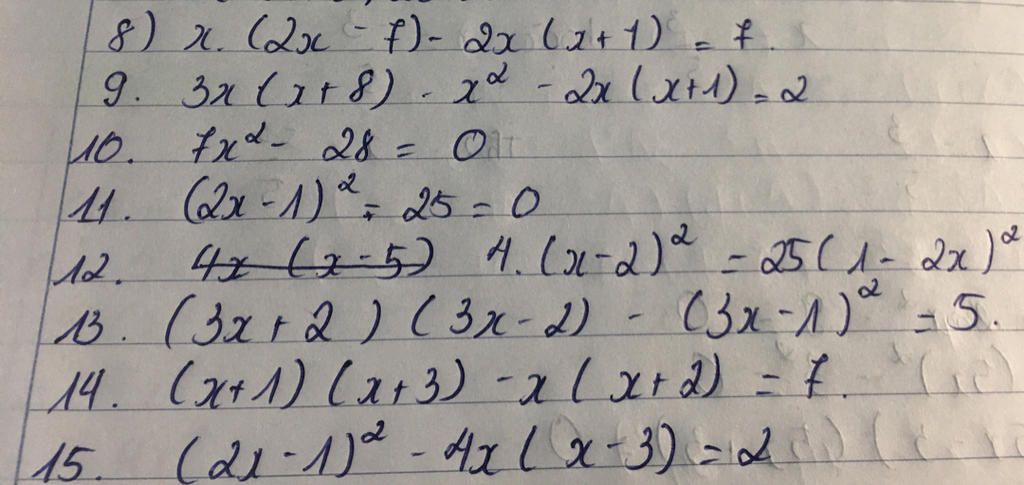 8) x. (2x - 7) - 2x (x+1) = 7.
9. 3x (x+8) - x² - 2x (x+1) = 2
10. 7x² - 28 = 0
11. (2x-1)² - 25 = 0
12. 4x (x-5) 4. (x-2)² = 25 (1 - 2x)²
13. (3x+2) (3x-2) - (3x-1)² = 5.
14. (x+1) (x+3) - x (x+2) = 7.
15. (2x-1)² - 4x (x-3) = 2